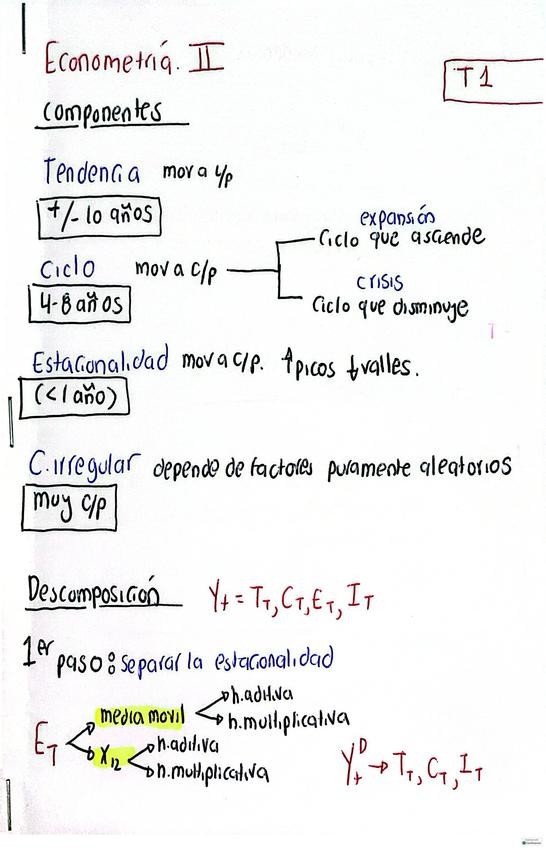 Econometría. II
T1
componentes
Tendencia mov a l/p
+/- 10 años
expansión
Ciclo que asciende
Ciclo mov a c/p
4-8 años
crisis
Ciclo que disminuye
Estacionalidad mov a c/p. ↑picos ↓valles.
(<1 año)
C. irregular depende de factores puramente aleatorios
muy c/p
Descomposición Yt = TT, CT, ET, IT
1er paso: separar la estacionalidad
media movil
h.aditiva
h.multiplicativa
ET
X12
h.aditiva
h.multiplicativa
YtD → TT, CT, IT